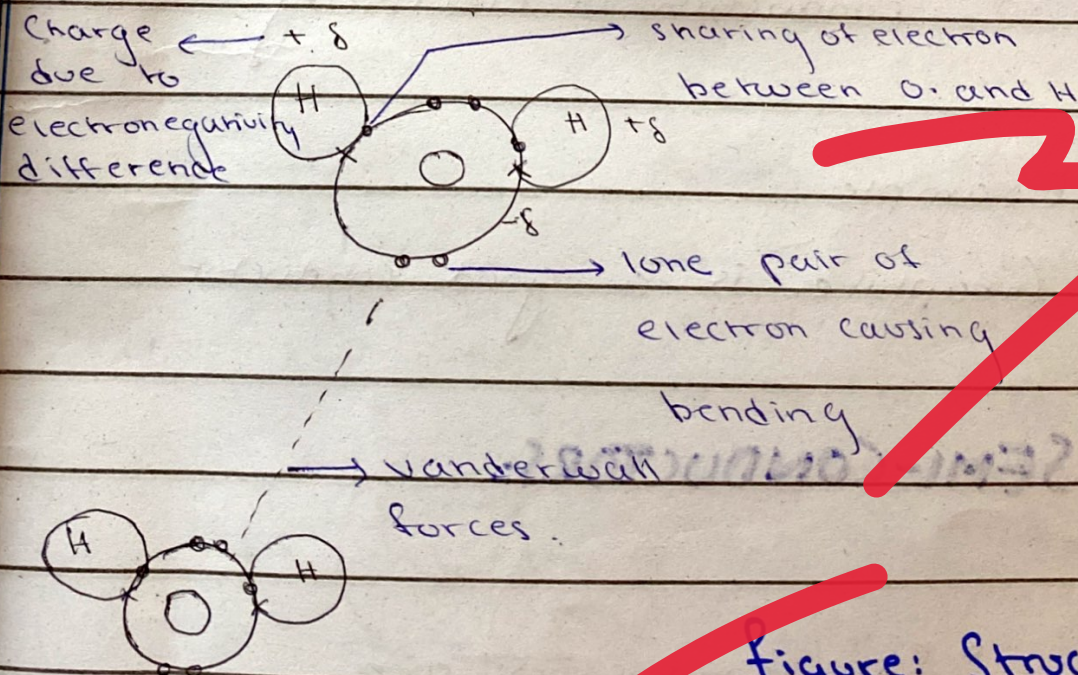 Charge ← + δ
due to
electronegativity
difference
sharing of electron
between O. and H
H
H +δ
O
-δ
lone pair of
electron causing
bending
vanderwall
forces.
H
H
O
figure: Struc